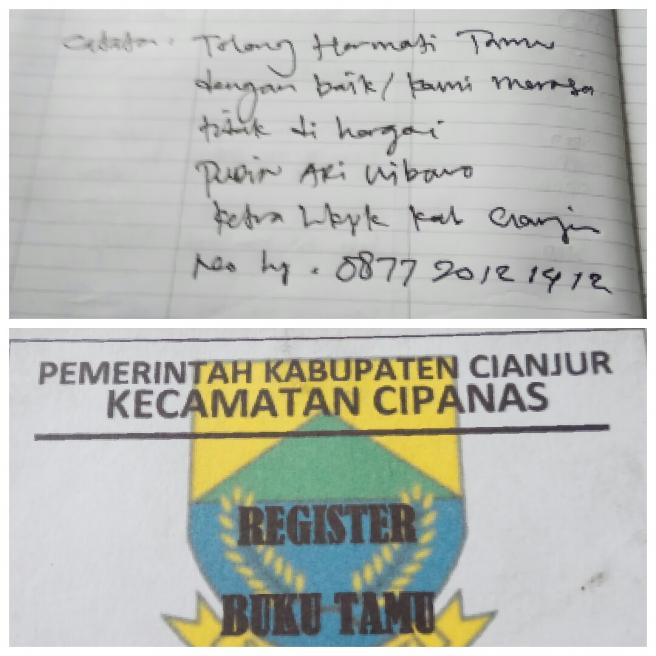 Catatan: Tolong Hormati Tamu
dengan baik / kami merasa
tidak di hargai
Rudin Aki Wibowo
Ketua Lkpk kab Cianjur
No hp. 0877 2012 1412
PEMERINTAH KABUPATEN CIANJUR
KECAMATAN CIPANAS
REGISTER
BUKU TAMU